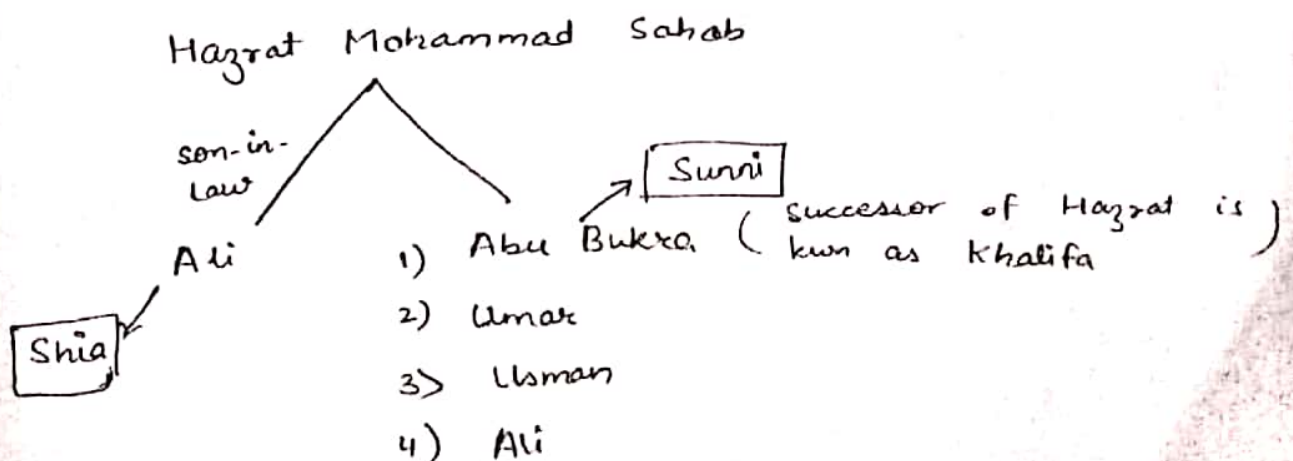 Hazrat Mohammad Sahab
son-in-
law
Sunni
Ali
1) Abu Bukra ( successor of Hazrat is
kwn as Khalifa )
Shia
2) Umar
3) Usman
4) Ali